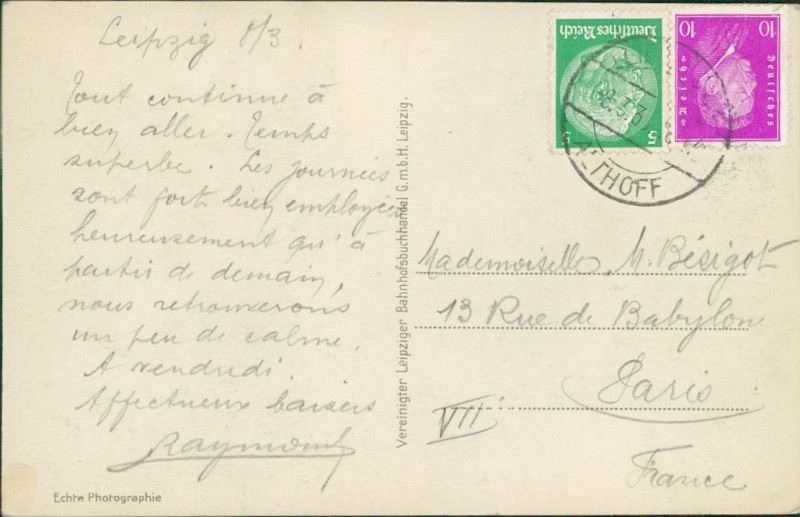 Leipzig 8/3.
Tout continue à
bien aller. Temps
superbe. Les journées
sont fort bien employées
heureusement qu'à
partir de demain,
nous retrouverons
un peu de calme.
A vendredi.
Affectueux baisers
Raymond
Echte Photographie
Vereinigter Leipziger Bahnhofsbuchhandel G.m.b.H. Leipzig.
Deutsches Reich
5 5
10 10
Deutsches
Reich
ALTHOFF
Mademoiselle M. Bésigot
13 Rue de Babylone
Paris
VII
France